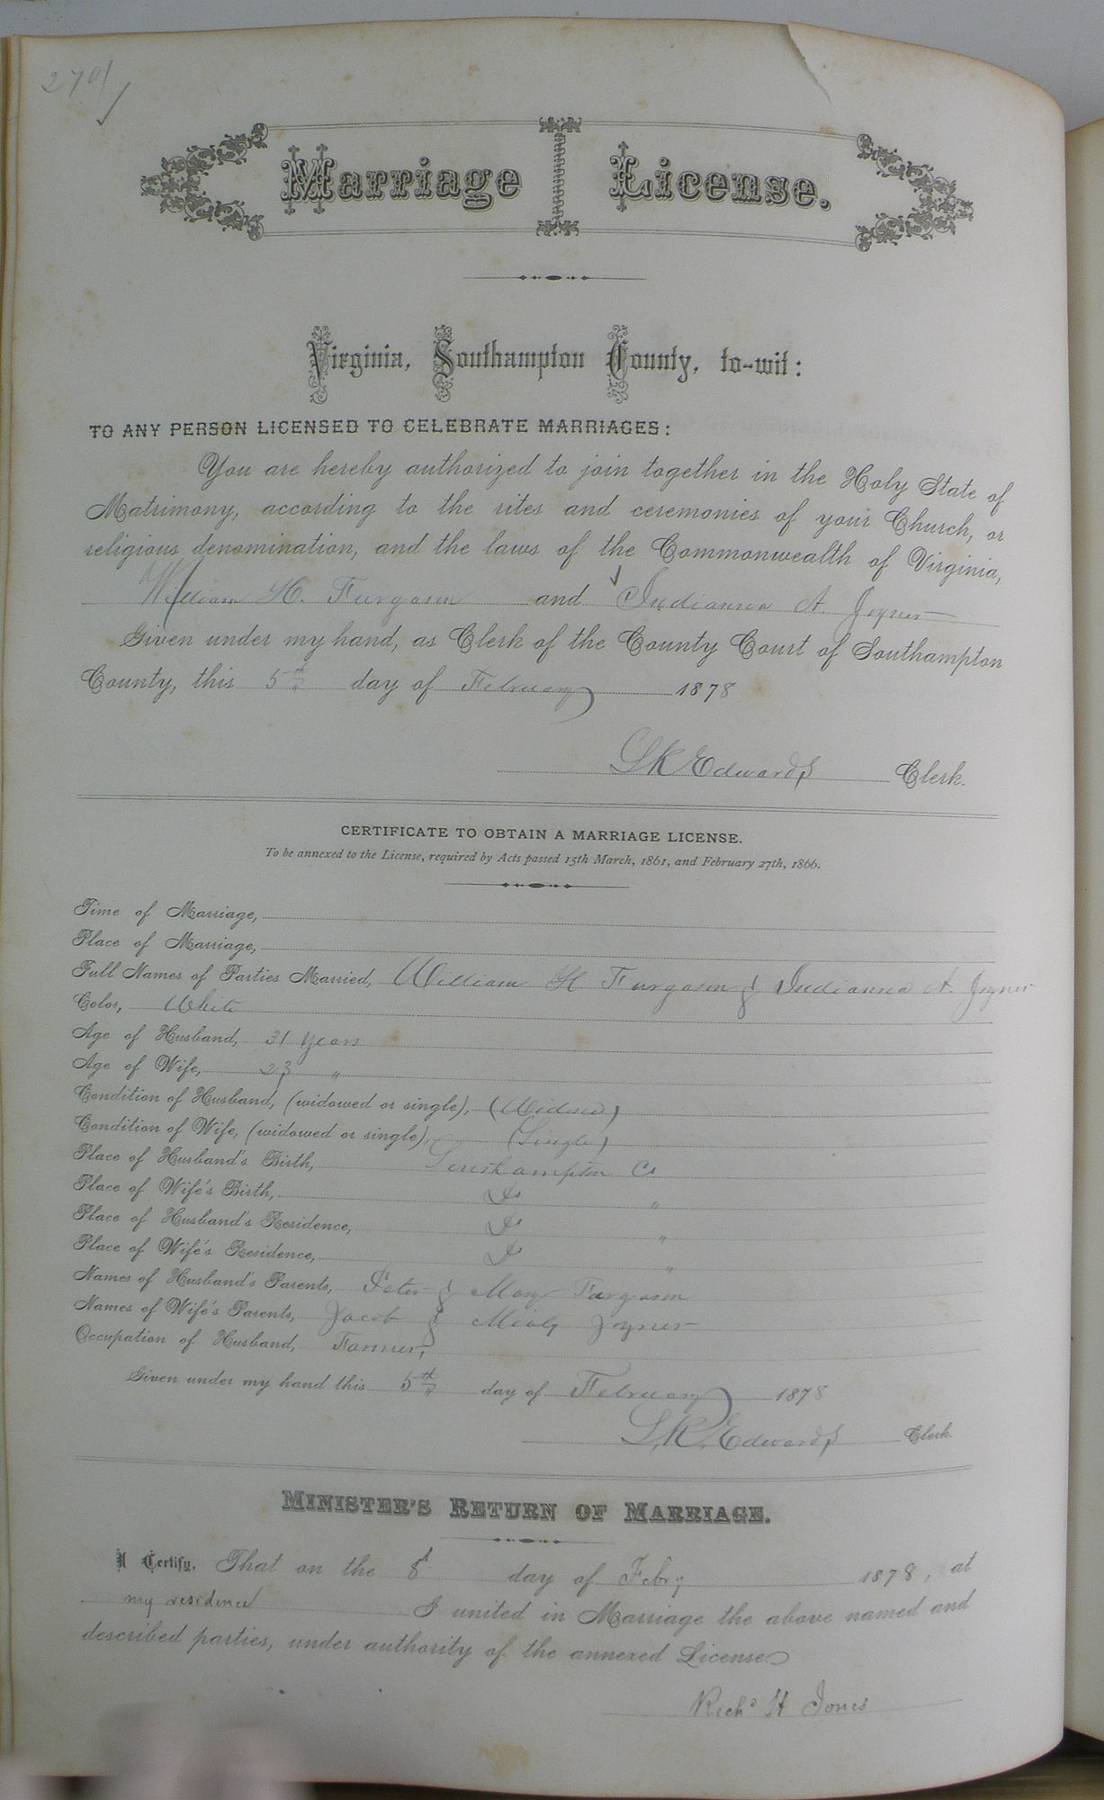 270
Marriage License.
Virginia, Southampton County, to-wit:
TO ANY PERSON LICENSED TO CELEBRATE MARRIAGES:
You are hereby authorized to join together in the Holy State of
Matrimony, according to the rites and ceremonies of your Church, or
religious denomination, and the laws of the Commonwealth of Virginia,
William H. Furgason and Indianna A. Joyner
Given under my hand, as Clerk of the County Court of Southampton
County, this 5th day of February 1878
L K Edwards Clerk.
CERTIFICATE TO OBTAIN A MARRIAGE LICENSE.
To be annexed to the License, required by Acts passed 15th March, 1861, and February 27th, 1866.
Time of Marriage,
Place of Marriage,
Full Names of Parties Married, William H Furgason & Indianna A. Joyner
Color, White
Age of Husband, 31 years
Age of Wife, 23 "
Condition of Husband, (widowed or single), (Widowed)
Condition of Wife, (widowed or single), (Single)
Place of Husband's Birth, Southampton Co
Place of Wife's Birth, Do "
Place of Husband's Residence, Do "
Place of Wife's Residence, Do "
Names of Husband's Parents, Peter & Mary Furgason
Names of Wife's Parents, Jacob & Joyner
Occupation of Husband, Farmer,
Given under my hand this 5th day of February 1878
L. K. Edwards Clerk.
MINISTER'S RETURN OF MARRIAGE.
I Certify, That on the 8th day of Feby 1878, at
my residence I united in Marriage the above named and
described parties, under authority of the annexed License
Richd H Jones